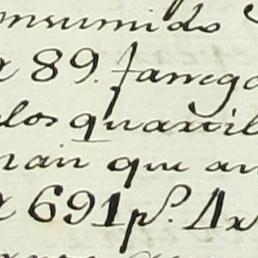 onsumido
a 89. fanega
los quartil
nan que an
a 691 p.s